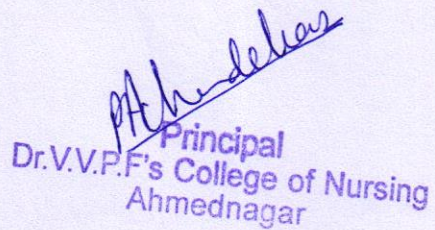 Principal
Dr.V.V.P.F's College of Nursing
Ahmednagar